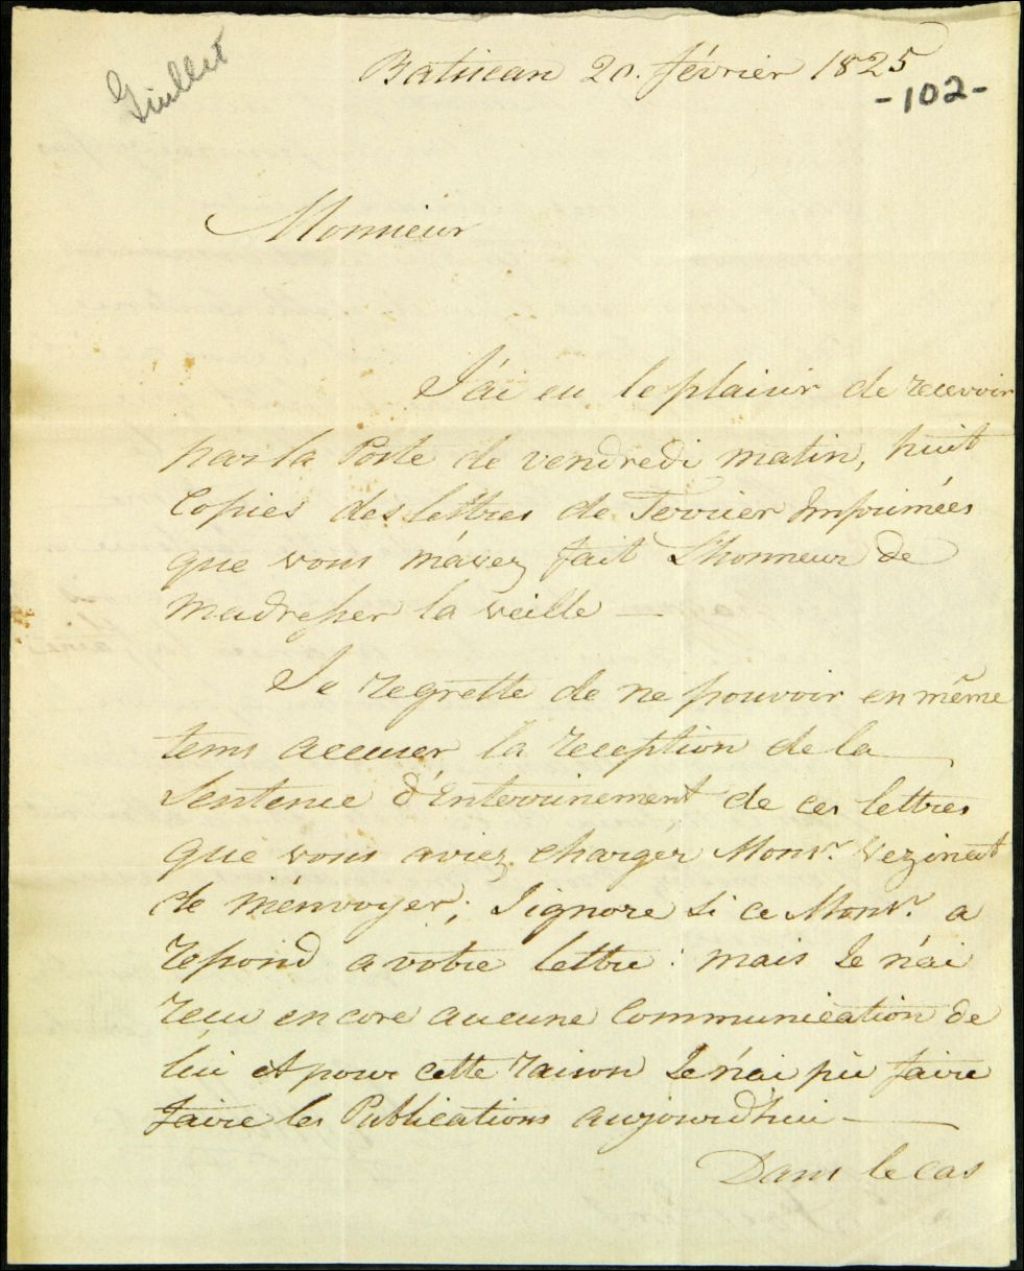 Guillet
Batiscan 20. février 1825
-102-
Monsieur
J'ai eu le plaisir de recevoir
par la Poste de vendredi matin, huit
Copies des lettres de Terrier Imprimées
que vous m'avez fait L'honneur de
m'adresser la veille —
Je regrette de ne pouvoir en même
tems accuser la reception de la
Sentence d'Enterrinement de ces lettres
que vous aviez charger Monsr. Vezinat
de m'énvoyer; J'ignore si ce Monsr. a
repond a votre lettre : mais Je n'ai
reçu encore aucune Communication de
lui et pour cette raison Je n'ai pû faire
faire les Publications aujourd'hui —
Dans le cas